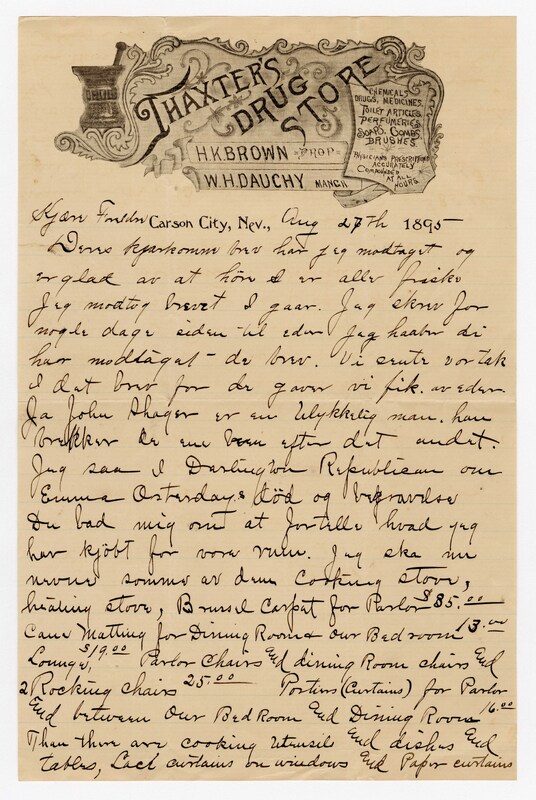 DRUG STORE
THAXTER'S
DRUG
STORE
H.K. BROWN PROP.
W.H. DAUCHY MANGR
CHEMICALS
DRUGS, MEDICINES,
TOILET ARTICLES
PERFUMERIES
SOAPS, COMBS,
BRUSHES
PHYSICIANS PRESCRIPTIONS
ACCURATELY
COMPOUNDED
AT ALL
HOURS
Kjære Forældre Carson City, Nev., Aug 27th 1895
Deres kjærkomne brev har jeg modtaget og
er glad av at höre I er alle friske
Jeg modtog brevet I gaar. Jeg skrev for
nogle dage siden til eder Jeg haaber di
har modtaget de brev. Vi sente vor tak
I det brev for de gaver vi fik av eder.
Ja John Shager er en Ulykkelig man. han
brekker de ene been efter det andet.
Jeg saa I Darlington Republican om
Emma Osterdays död og begravelse
Du bad mig om at fortelle hvad jeg
har kjöbt for vore rum. Jeg ska nu
nevne somme av dem Cooking stove,
heating stove, Brussel Carpat for Parlor $85.00
Cane Matting for Dining Room & our Bedroom 13.00
Lounge, $19.00 Parlor Chairs End dining Room chairs End
2 Rocking Chairs 25.00 Portiers (Curtains) for Parlor
End between Our Bed Room End Dining Room 16.00
Than there are cooking Utensils End dishes End
tables, Lace curtains on windows End Paper curtains